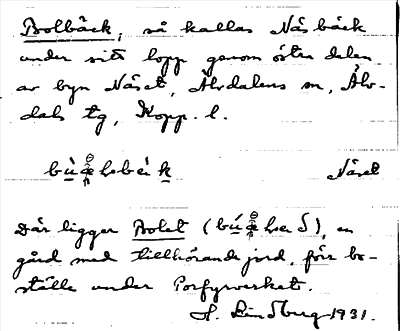 Bolbäck, så kallas Näsbäck
under sitt lopp genom östra delen
av byn Näset, Älvdalens sn, Älv-
dals tg, Kopp. l.
Näset
Där ligger Bolet, en
gård med tillhörande jord, förr bo-
ställe under Porfyrverket.
H. Lindberg 1931.